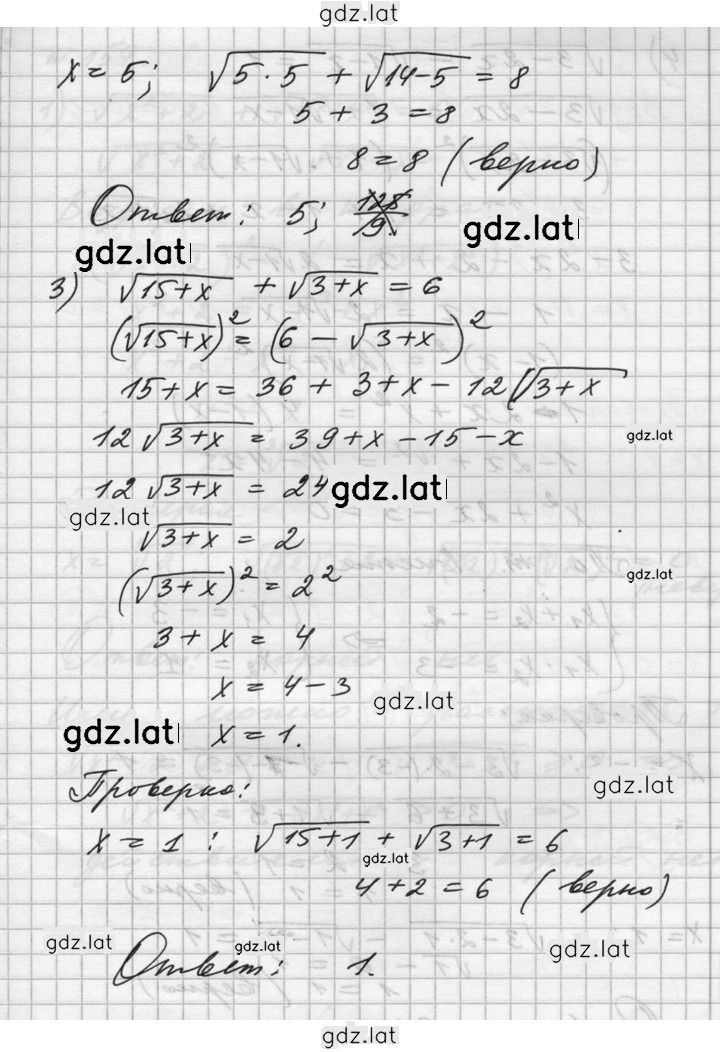 gdz.lat
x = 5; √(5·5) + √(14-5) = 8
5 + 3 = 8
8 = 8 (верно)
Ответ: 5; 128/9.
gdz.lat gdz.lat
3) √(15+x) + √(3+x) = 6
(√(15+x))² = (6 - √(3+x))²
15+x = 36 + 3+x - 12(√(3+x)
12 √(3+x) = 39+x-15-x gdz.lat
12 √(3+x) = 24 gdz.lat
gdz.lat
√(3+x) = 2
(√(3+x))² = 2² gdz.lat
3 + x = 4
x = 4-3 gdz.lat
gdz.lat x = 1.
Проверка: gdz.lat
x = 1 : √(15+1) + √(3+1) = 6
gdz.lat
4+2 = 6 (верно)
gdz.lat gdz.lat gdz.lat
Ответ: 1.
gdz.lat